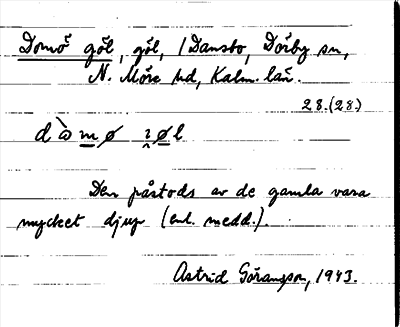 Domö göl, göl, /Dansbo, Dörby sn,
N. Möre hd, Kalm. län.
28.(28.)
dàmø ɩøl
Den påstods av de gamla vara
mycket djup (enl. medd.).
Astrid Göransson, 1943.